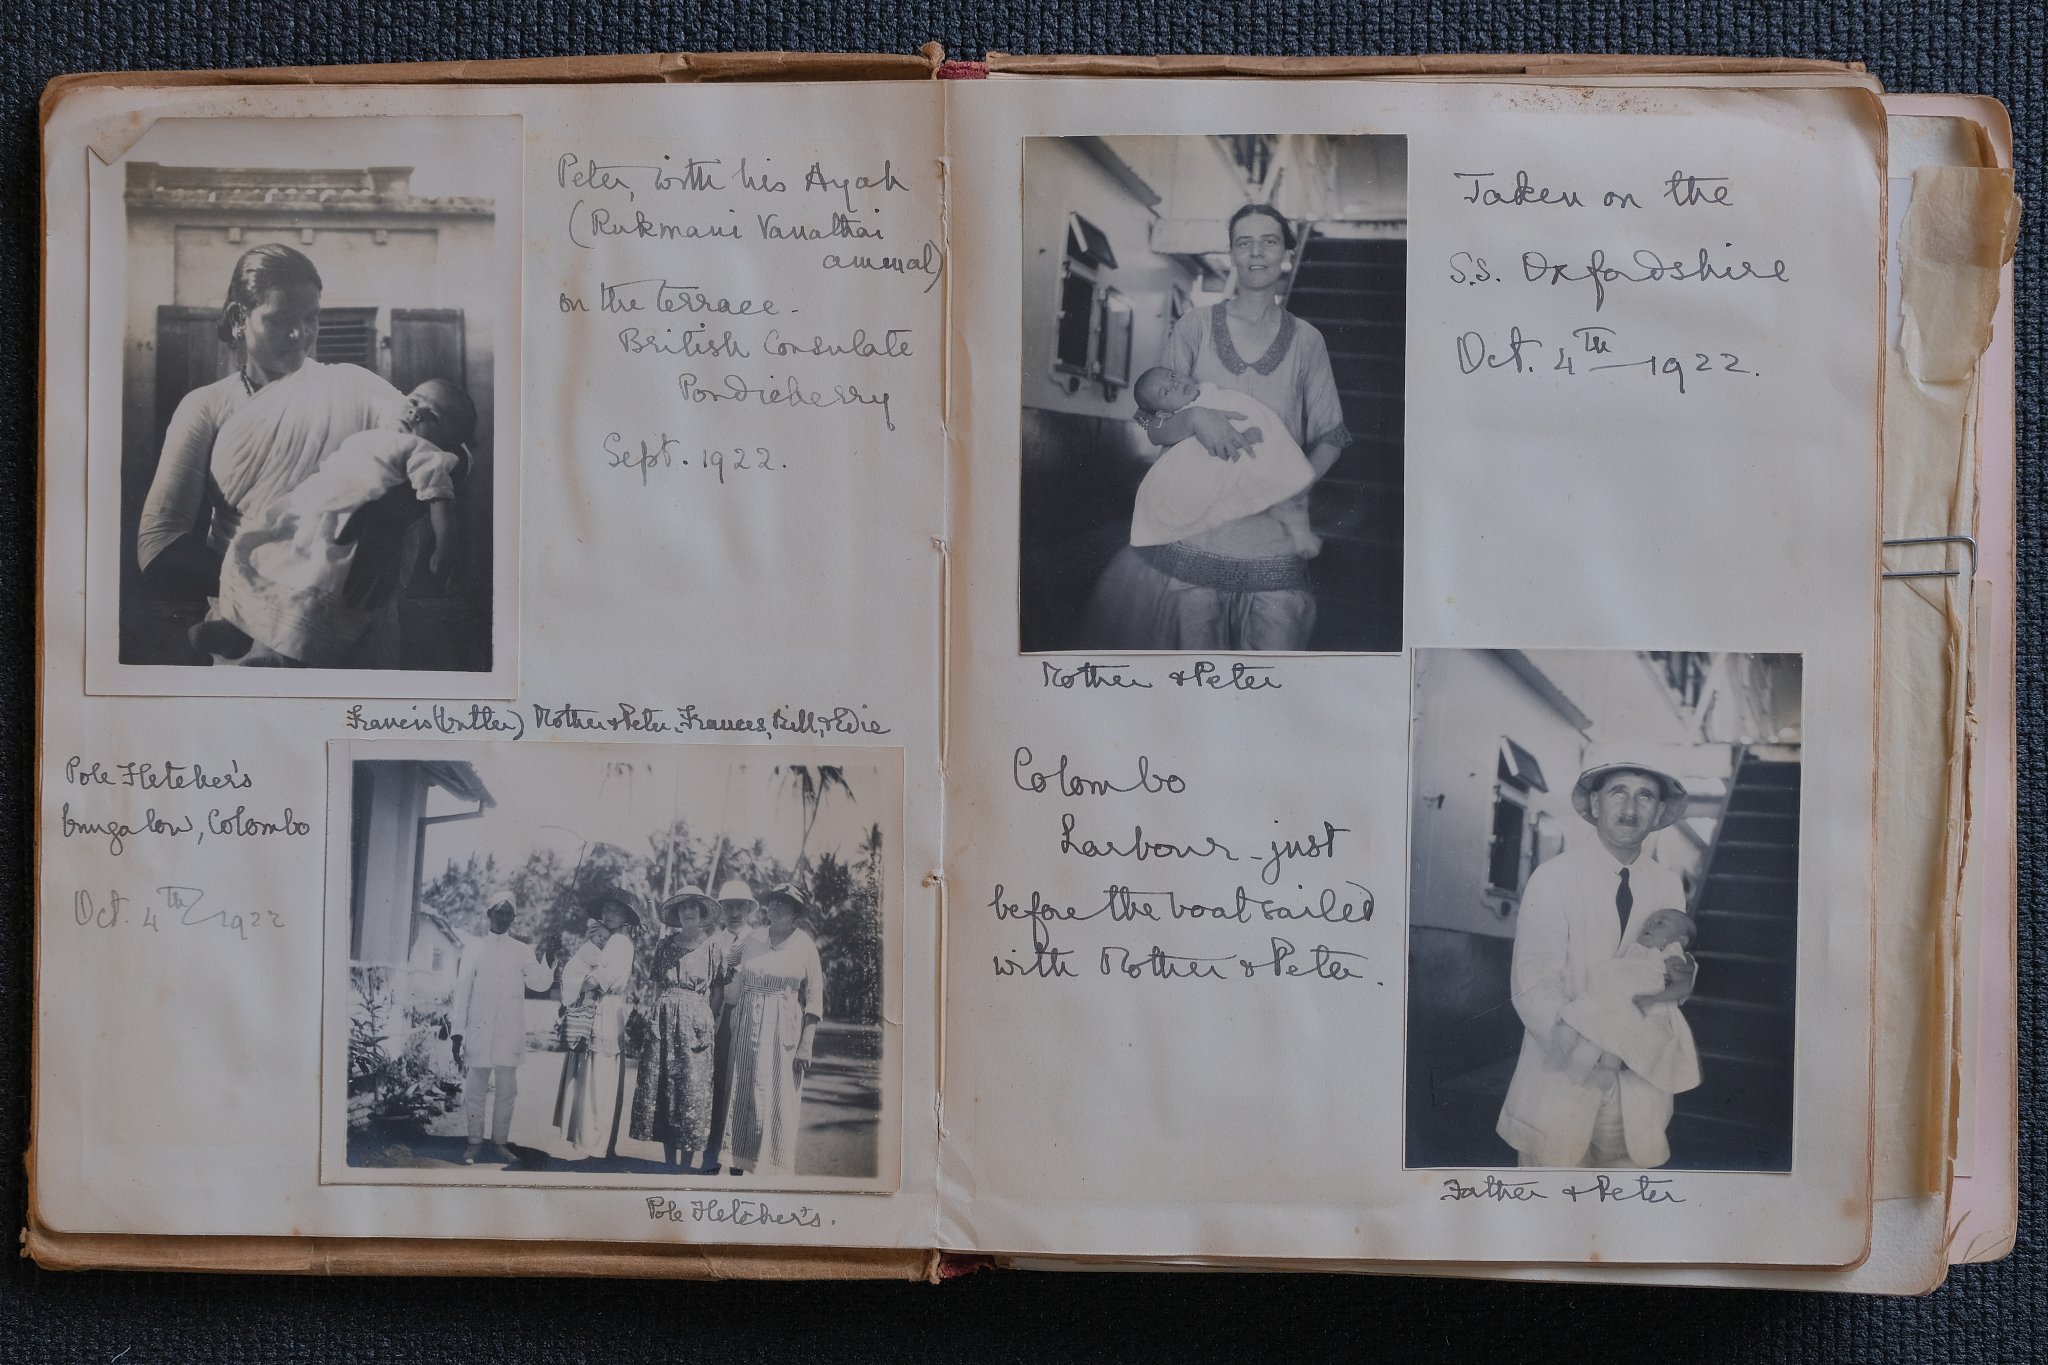 Peter, with his Ayah
(Rukmani Vanathai
ammal)
on the terrace.
British Consulate
Pondicherry
Sept. 1922.
Francis (butler) Mother & Peter, Frances, Bill, & Edie
Pole Fletcher's
bungalow, Colombo
Oct. 4th 1922
Pole Fletcher's.
Taken on the
S.S. Oxfordshire
Oct. 4th 1922.
Mother & Peter
Colombo
Harbour - just
before the boat sailed
with Mother & Peter.
Father & Peter